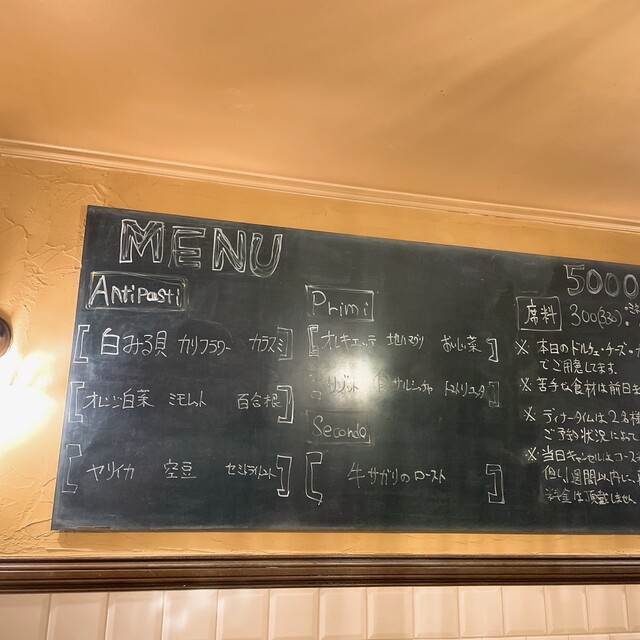 MENU
Antipasti
白みる貝 カリフラワー カラスミ
オレンジ白菜 ミモレット 百合根
ヤリイカ 空豆 セミドライトマト
Primi
オレキエッテ 地ハマグリ
リゾット サルシッチャ
Secondo
牛サガリのロースト
5000
席料 300(330)
※本日のドルチェ・チーズ・
でご用意してます。
※苦手な食材は前日ま
※ディナータイムは2名様
ご予約状況によって
※当日キャンセルはコース
料金は頂戴しません